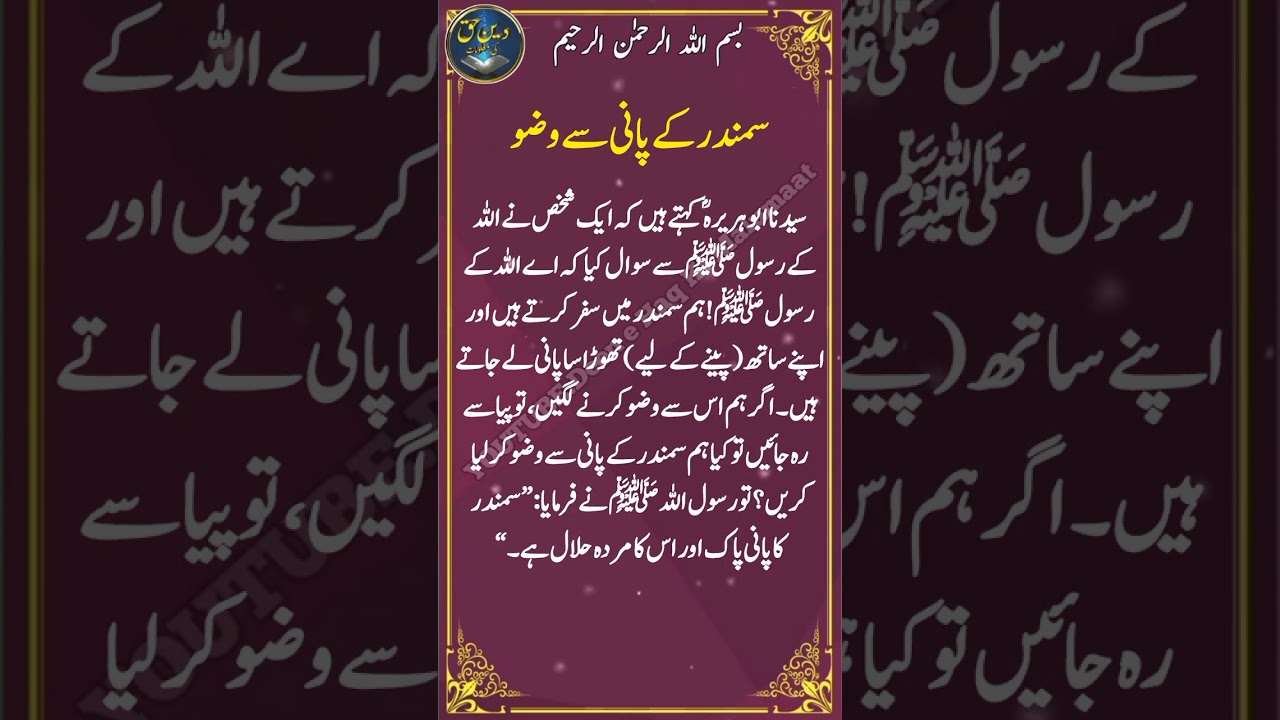 دین حق
کی معلومات
بسم اللہ الرحمٰن الرحیم
سمندر کے پانی سے وضو
سیدنا ابو ہریرہؓ کہتے ہیں کہ ایک شخص نے اللہ
کے رسول ﷺ سے سوال کیا کہ اے اللہ کے
رسول ﷺ! ہم سمندر میں سفر کرتے ہیں اور
اپنے ساتھ (پینے کے لیے) تھوڑا سا پانی لے جاتے
ہیں۔ اگر ہم اس سے وضو کرنے لگیں، تو پیاسے
رہ جائیں تو کیا ہم سمندر کے پانی سے وضو کر لیا
کریں؟ تو رسول اللہ ﷺ نے فرمایا: ”سمندر
کا پانی پاک اور اس کا مردہ حلال ہے۔“